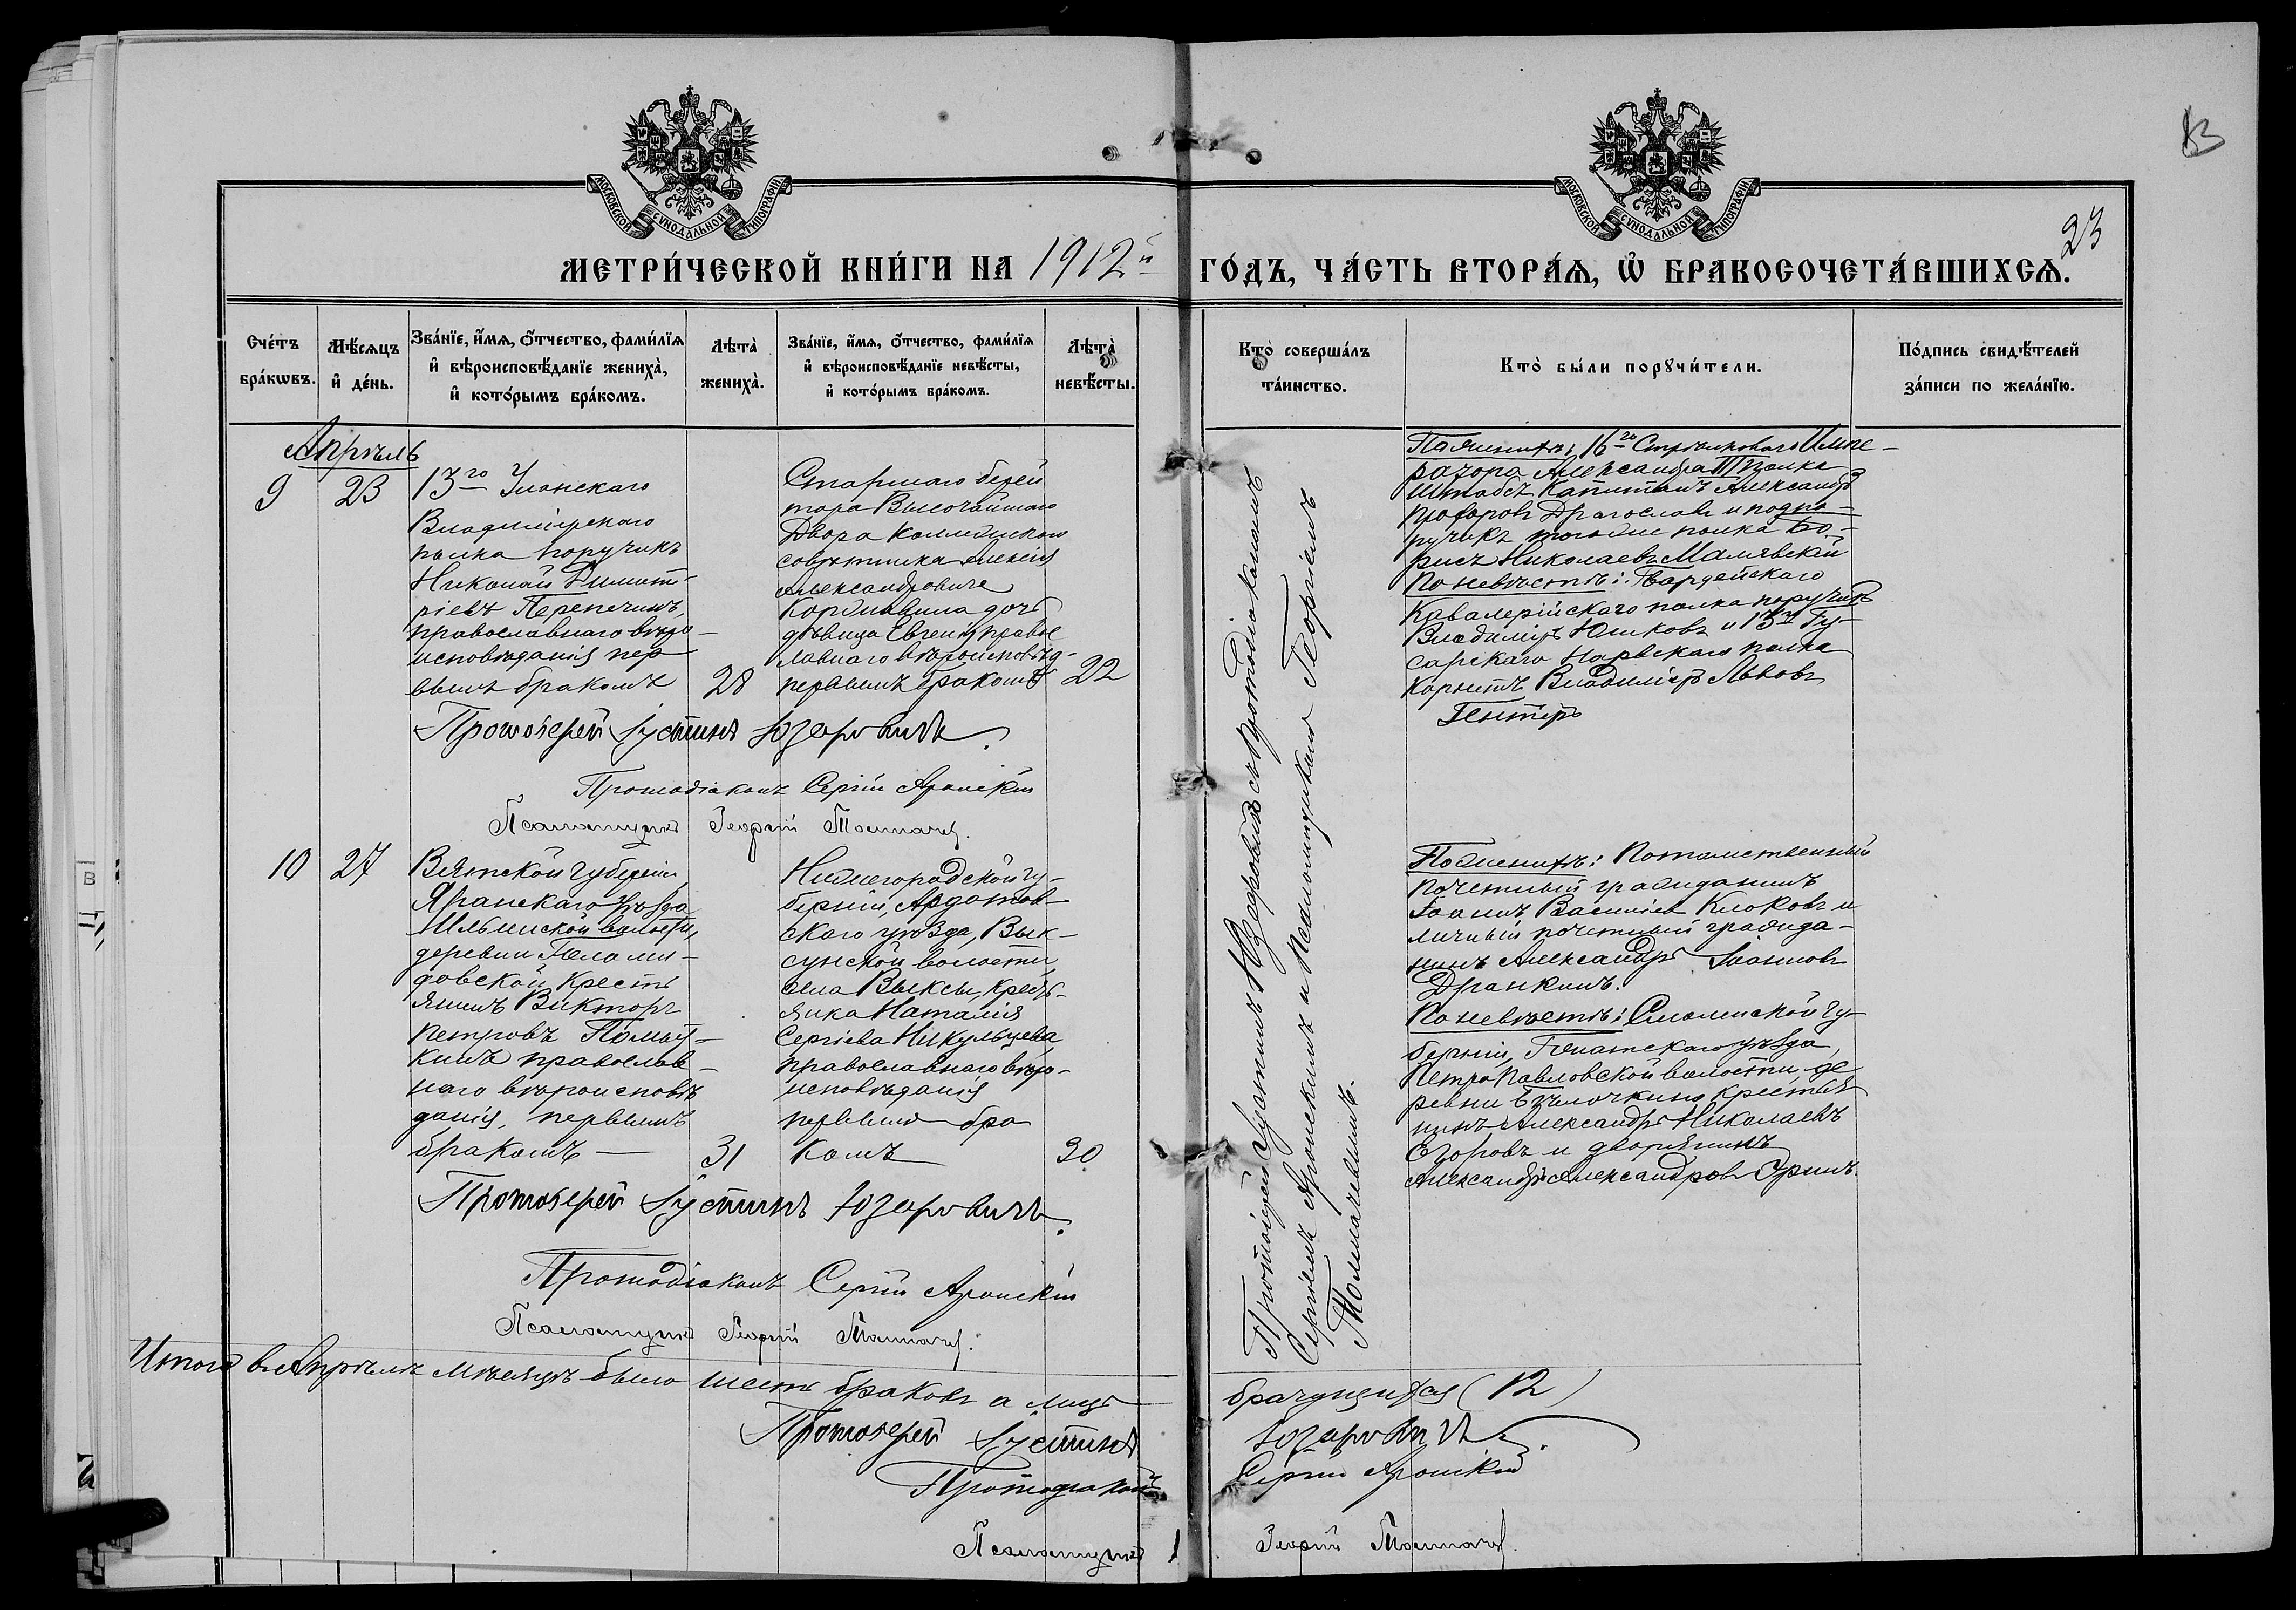 МОСКОВСКОЙ СѴНОДАЛЬНОЙ ТИПОГРАФІИ
МОСКОВСКОЙ СѴНОДАЛЬНОЙ ТИПОГРАФІИ
23
МЕТРИ́ЧЕСКОЙ КНИ́ГИ НА 1912й ГО́ДЪ, ЧА́СТЬ ВТОРА́Ѧ, Ѽ БРАКОСОЧЕТА́ВШИХСѦ.
Сче́тъ бра́кѡвъ.
Мѣ́сѧцъ и҆ де́нь.
Зва́нїе, и҆́мѧ, ѻ҆́тчество, фами́лїѧ и҆ вѣроисповѣ́данїе жениха̀, и҆ кото́рымъ бра́комъ.
Лѣта̀ жениха̀.
Зва́нїе, и҆́мѧ, ѻ҆́тчество, фами́лїѧ и҆ вѣроисповѣ́данїе невѣ́сты, и҆ кото́рымъ бра́комъ.
Лѣта̀ невѣ́сты.
Кто̀ соверша́лъ та́инство.
Кто̀ бы́ли порꙋчи́тели.
По́дпись свидѣ́телей за́писи по жела́нїю.
Апрѣль
9
23
13го Уланскаго
Владимірскаго
полка поручикъ
Николай Димит-
ріевъ Перепечинъ,
православнаго вѣро-
исповѣданія пер
вымъ бракомъ
28
Старшаго берей
тора Высочайшаго
Двора Коллежскаго
совѣтника Алексія
Александровича
дочь
дѣвица Евгенія правос
лавнаго вѣроисповѣд-
первымъ бракомъ
22
По женихѣ: 16го Стрѣлковаго Импе-
ратора Александра III полка
Штабсъ Капитанъ Александръ
Драгославъ и подпо-
ручикъ того же полка Бо-
рисъ Николаевъ Малявскій
По невѣстѣ: Гвардейскаго
Кавалерійскаго полка поручикъ
Владиміръ Юшковъ и 13го Гу-
сарскаго Нарвскаго полка
Корнетъ Владиміръ Львовъ
Гентеръ
Протоіерей Іустинъ Юзефовичъ.
Протодіаконъ Сергій Аронскій
Псаломщикъ Георгій Толмачев.
10
27
Вятской губерніи
Яранскаго уѣзда
Ильинской волости,
деревни Пелами-
довской, Кресть
янинъ Викторъ
Петровъ
кинъ православ-
наго вѣроисповѣ
данія, первымъ
бракомъ —
31
Нижегородской гу-
берніи, Ардатов-
скаго уѣзда, Вык-
сунской волости,
села Выксы, кресть-
янка Наталія
Сергіева Никульцева,
православнаго вѣро-
исповѣданія
первымъ бра
комъ
30
По женихѣ: Потомственный
почетный гражданинъ
Іоаннъ Василіевъ Клоковъ и
личный почетный гражда-
нинъ Александръ Іоанновъ
Дранкинъ.
По невѣстѣ: Смоленской гу-
берніи, Гжатскаго уѣзда,
Петропавловской волости, де
ревни Бѣлочкино крестья
нинъ Александръ Николаевъ
Егоровъ и дворянинъ
Александръ Александровъ Эринъ.
Протоіерей Іустинъ Юзефовичъ.
Протодіаконъ Сергій Аронскій
Псаломщикъ Георгій Толмачев.
Протоіерей Іустинъ Юзефовичъ съ Протодіакономъ
Сергіемъ Аронскимъ и Псаломщикомъ Георгіемъ
Толмачевымъ.
Итого въ Апрѣлѣ мѣсяцѣ было шесть браковъ а лицъ брачущихся (12)
Протоіерей Іустинъ Юзефовичъ.
Протодіаконъ Сергій Аронскій
Псаломщикъ Георгій Толмачев.